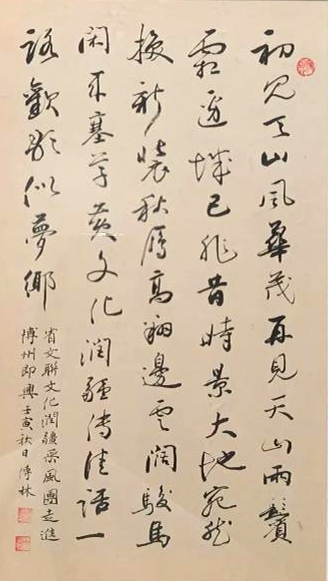 初見天山風華茂再見天山兩鬢
霜邊城已非昔時景大地宛然
換新裝秋雁高翔邊雲闊駿馬
閑來塞草黃文化潤疆傳佳話一
路歡歌似夢鄉
省文聯文化潤疆采風團走進
博州即興壬寅秋日傅林